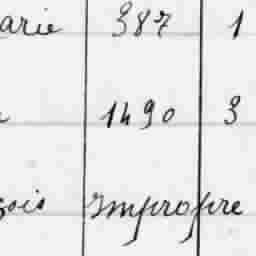 arie 387 1
1490 3
çois Impropre